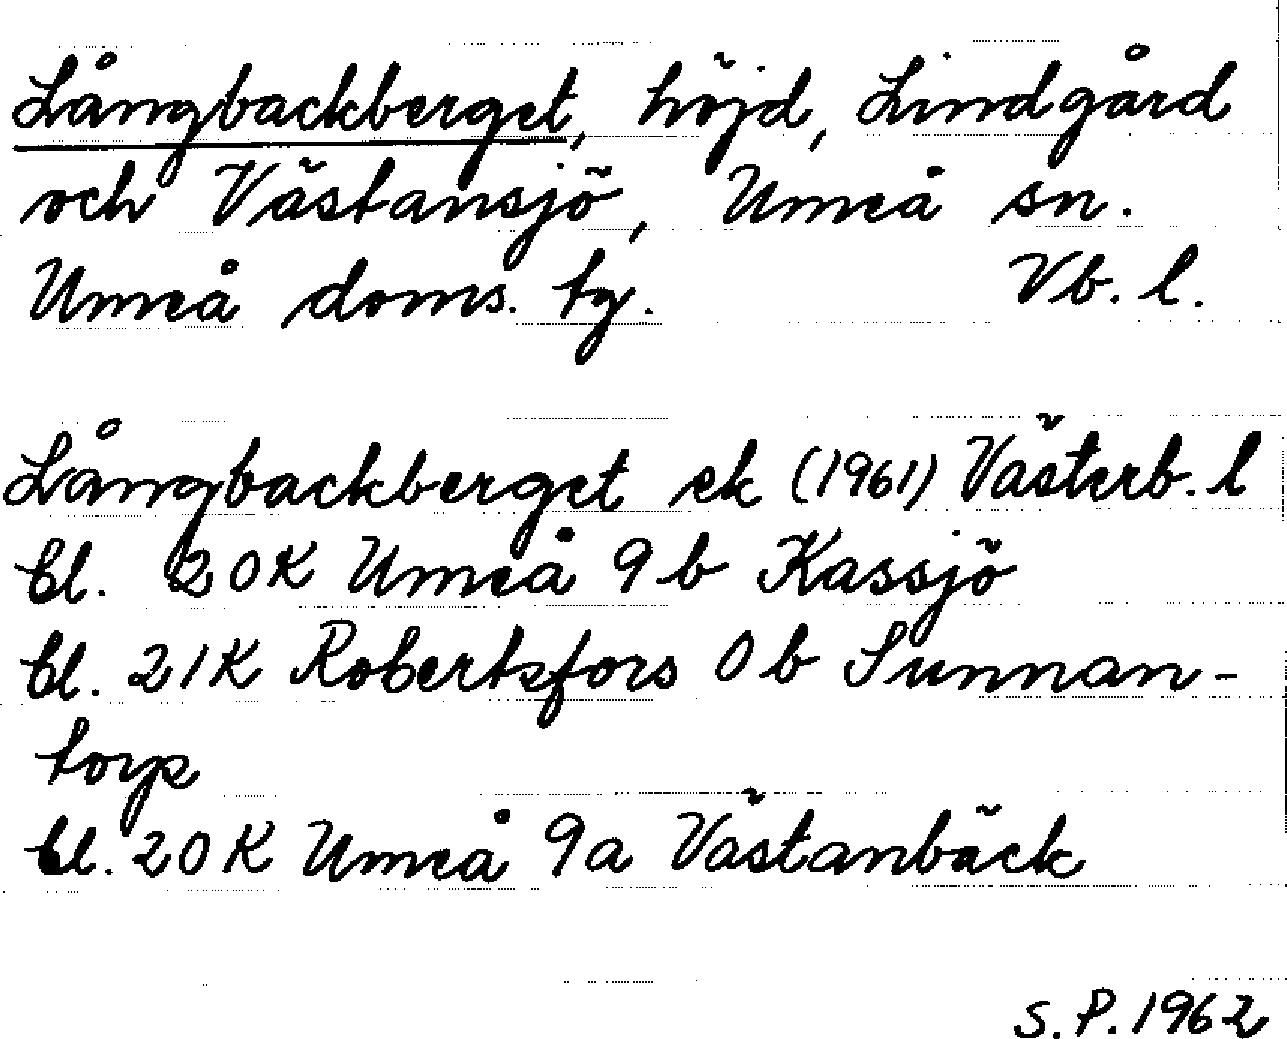 Långbackberget, höjd, Lindgård
och Västansjö, Umeå sn.
Umeå doms. tg. Vb. l.
Långbackberget ek (1961) Västerb. l
bl. 20K Umeå 9b Kassjö
bl. 21K Robertsfors 0b Sunnan-
torp
bl. 20K Umeå 9a Västanbäck
S.P. 1962